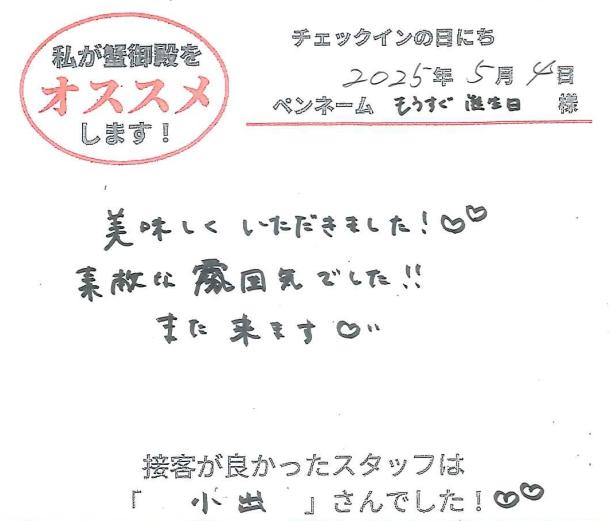 私が蟹御殿を
オススメ
します！
チェックインの日にち
2025年 5月 4日
ペンネーム もうすぐ誕生日 様
美味しくいただきました！♡♡
素敵な雰囲気でした!!
また来ます♡
接客が良かったスタッフは
「 小出 」さんでした！♡♡